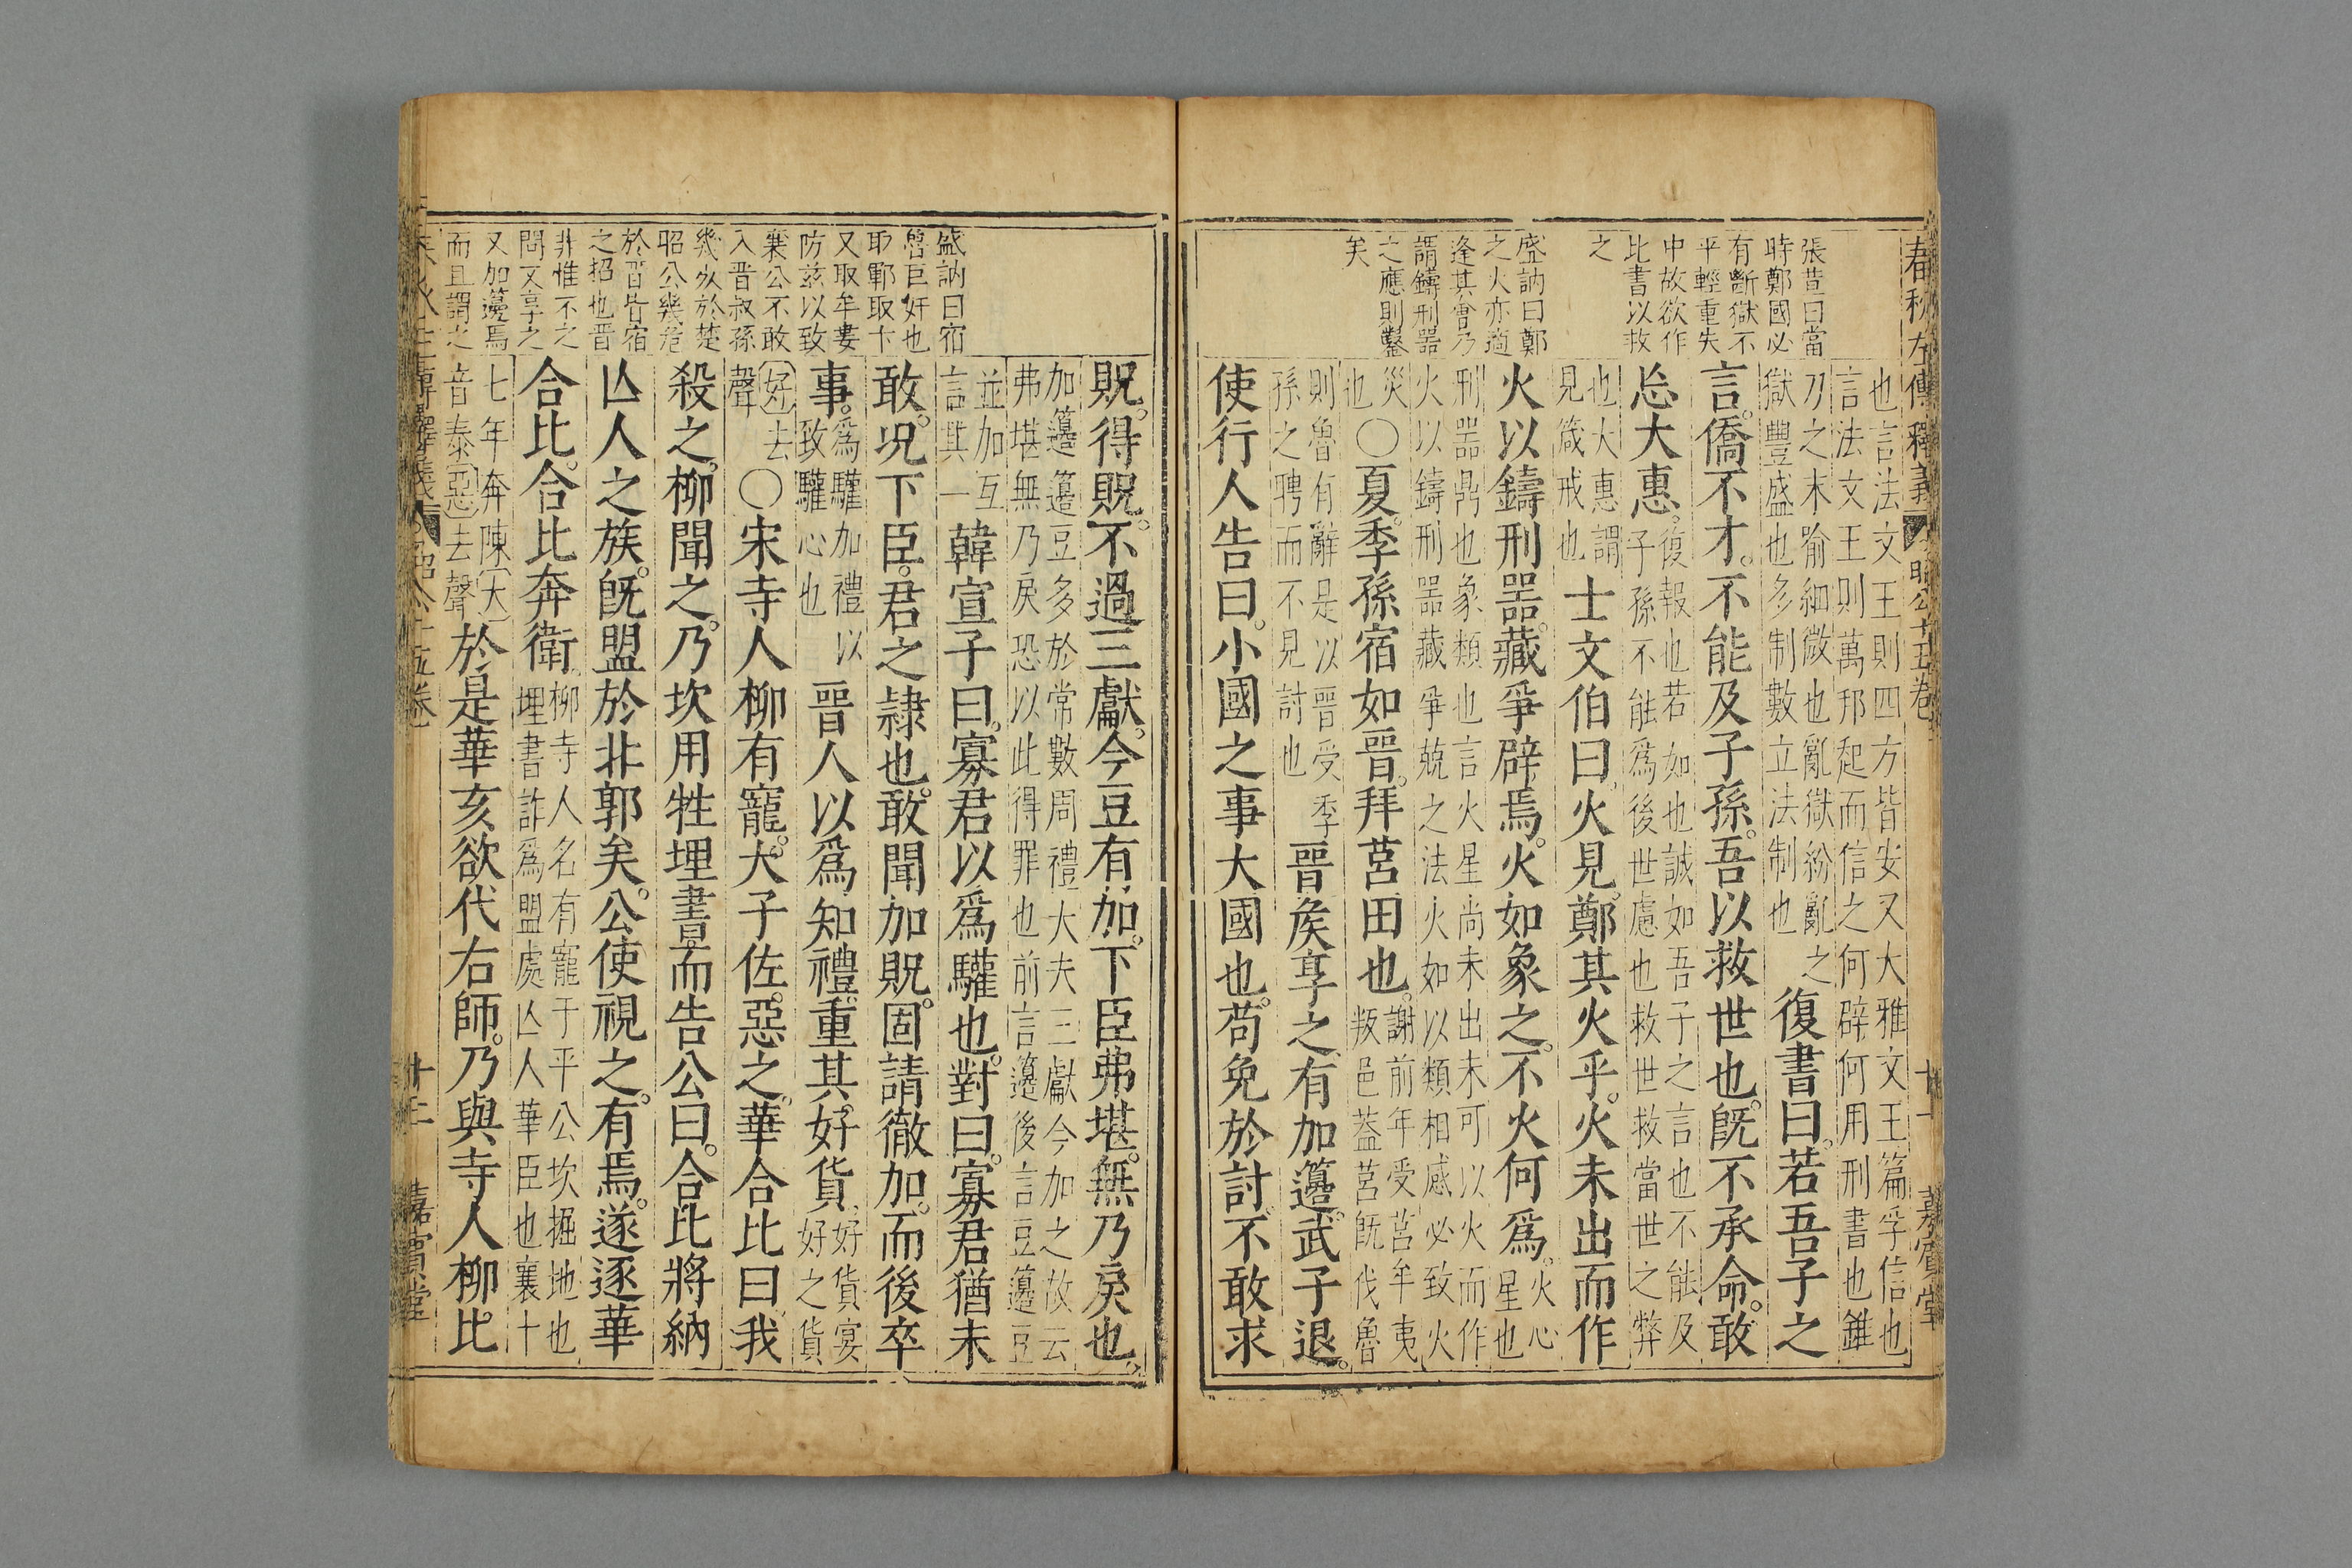 春秋左傳釋義 昭公十五卷 十一 嘉賓堂
張昔曰當
時鄭國必
有斷獄不
平輕重失
中故欲作
比書以救
之
盛訥曰鄭
之火亦適
逢其會乃
謂鑄刑器
之應則鑿
矣
也言法文王則四方皆安又大雅文王篇孚信也
言法文王則萬邦起而信之何辟何用刑書也錐
刀之末喻細微也亂獄紛亂之
獄豐盛也多制數立法制也
復書曰。若吾子之
言。僑不才。不能及子孫。吾以救世也。旣不承命。敢
忘大惠。
復報也若如也誠如吾子之言也不能及
子孫不能爲後世慮也救世救當世之弊
也大惠謂
見箴戒也
士文伯曰。火見。鄭其火乎。火未出而作
火以鑄刑器。藏爭辟焉。火如象之。不火何爲。
火心
星也
刑器鼎也象類也言火星尚未出未可以火而作
火以鑄刑器藏爭競之法火如以類相感必致火
災
也
〇夏。季孫宿如晉。拜莒田也。
謝前年受莒牟夷
叛邑葢莒旣伐魯
則魯有辭是以晉受季
孫之聘而不見討也
晉矦享之。有加籩。武子退。
使行人告曰。小國之事大國也。苟免於討。不敢求
盛訥曰宿
魯巨奸也
取鄆取卞
又取牟婁
防茲以致
襄公不敢
入晉叔孫
幾及於楚
昭公幾危
於晉皆宿
之招也晉
非惟不之
問又享之
又加籩焉
而且謂之
貺。得貺。不過三獻。今豆有加。下臣弗堪。無乃戾也。
加籩籩豆多於常數周禮大夫三獻今加之故云
弗堪無乃戾恐以此得罪也前言籩後言豆籩豆
並加互
言其一
韓宣子曰。寡君以爲驩也。對曰。寡君猶未
敢。况下臣。君之隷也。敢聞加貺。固請徹加。而後卒
事。
爲驩加禮以
致驩心也
晉人以爲知禮。重其好貨。
好貨宴
好之貨
好去
聲
〇宋寺人柳有寵。大子佐。惡之。華合比曰。我
殺之。柳聞之。乃坎用牲埋書。而告公曰。合比將納
亾人之族。旣盟於北郭矣。公使視之。有焉。遂逐華
合比。合比奔衛。
柳寺人名有寵于平公坎掘地也
埋書詐爲盟處亾人華臣也襄十
七年奔陳大
音泰惡去聲
於是華亥欲代右師。乃與寺人柳比
十二 嘉賓堂